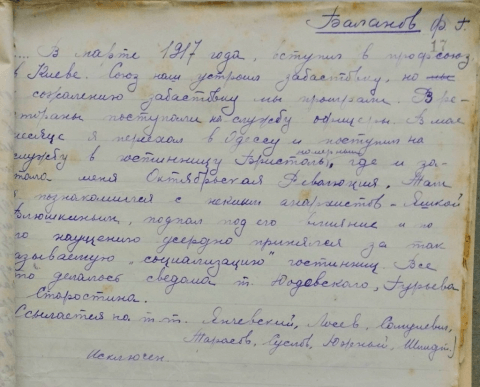 Баланов Ф. Г.
17
.... В марте 1917 года, оступил в профсоюз
в Киеве. Союз наш устроил забастовку, но
сожалению забастовку мы проиграли. В ре-
стораны поступали на службу офицеры. В мае
месяце я переехал в Одессу и поступил на
службу в гостинницу Бристоль, номерным где и за-
стала меня Октябрьская Революция. Там
я познакомился с неким анархистов - Яшкой
под его влияние и по
его наущению усердно принялся за так
азываемую „социализацию" гостинниц. Все
это делалось сведома т. Юдовского, Гурьева
Старостина.
Ссылается на т.т. Янчевский, Лосев, Самулевич,
Тарасов, Суслов, Южный, Шмидт.)
Исключен.